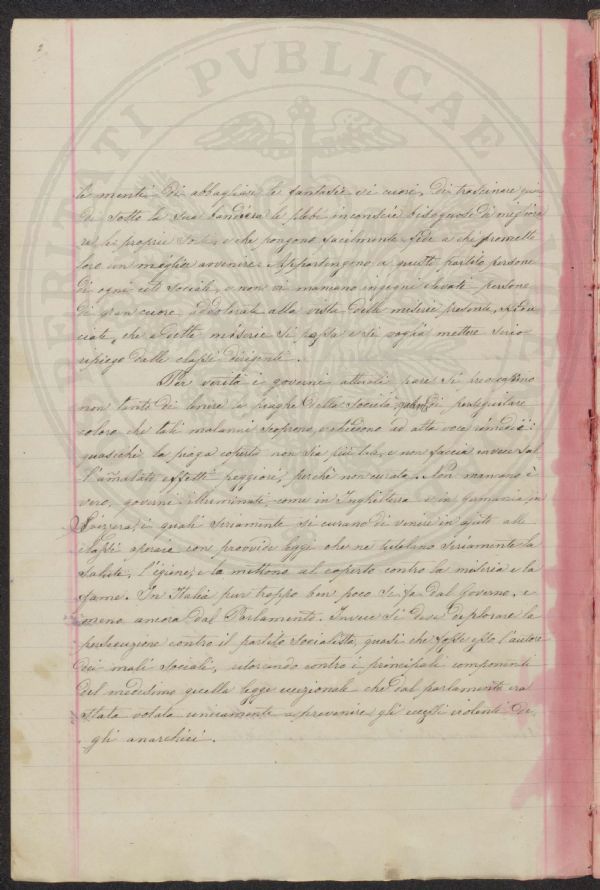 2
le menti di abbagliare le fantasie ed i cuori, di trascinare quin
di sotto la sua bandiera le plebi inconscie bisognose di migliora
re le proprie sorti, e che pongono facilmente fede a chi promette
loro un miglior avvenire. Appartengono a questo partito persone
di ogni ceto sociale, e non vi mancano ingegni elevati persone
di gran cuore addolorate alla vista delle miserie presenti, e
che a dette miserie si possa e si voglia mettere serio
ripiego dalle classi dirigenti.
Per verità i governi attuali pare si preoccupino
non tanto di lenire le piaghe della società, di perseguitare
coloro che tali malanni scoprono, e chiedono ad alta voce rimedio:
quasichè la piaga coperta non sia più tale, e non faccia invece sul
l'ammalato effetti peggiori, perchè non curata. Non mancano è
vero, governi illuminati come in Inghilterra e in Germania, in
Svizzera, i quali seriamente si curano di venire in ajuto alle
classi operaie con provvide leggi che ne tutelano seriamente la
salute, l'igiene, e la mettono al coperto contro la miseria e la
fame. In Italia pur troppo ben poco si fa dal Governo, e
meno ancora dal Parlamento. Invece si deve deplorare la
persecuzione contro il partito socialista, quasi che fosse esso l'autore
dei mali sociali, contro i principali componenti
del medesimo quella legge eccezionale che dal parlamento era
stata votata unicamente a prevenire gli eccessi violenti de
gli anarchici.
PROSPERITATI PVBLICAE